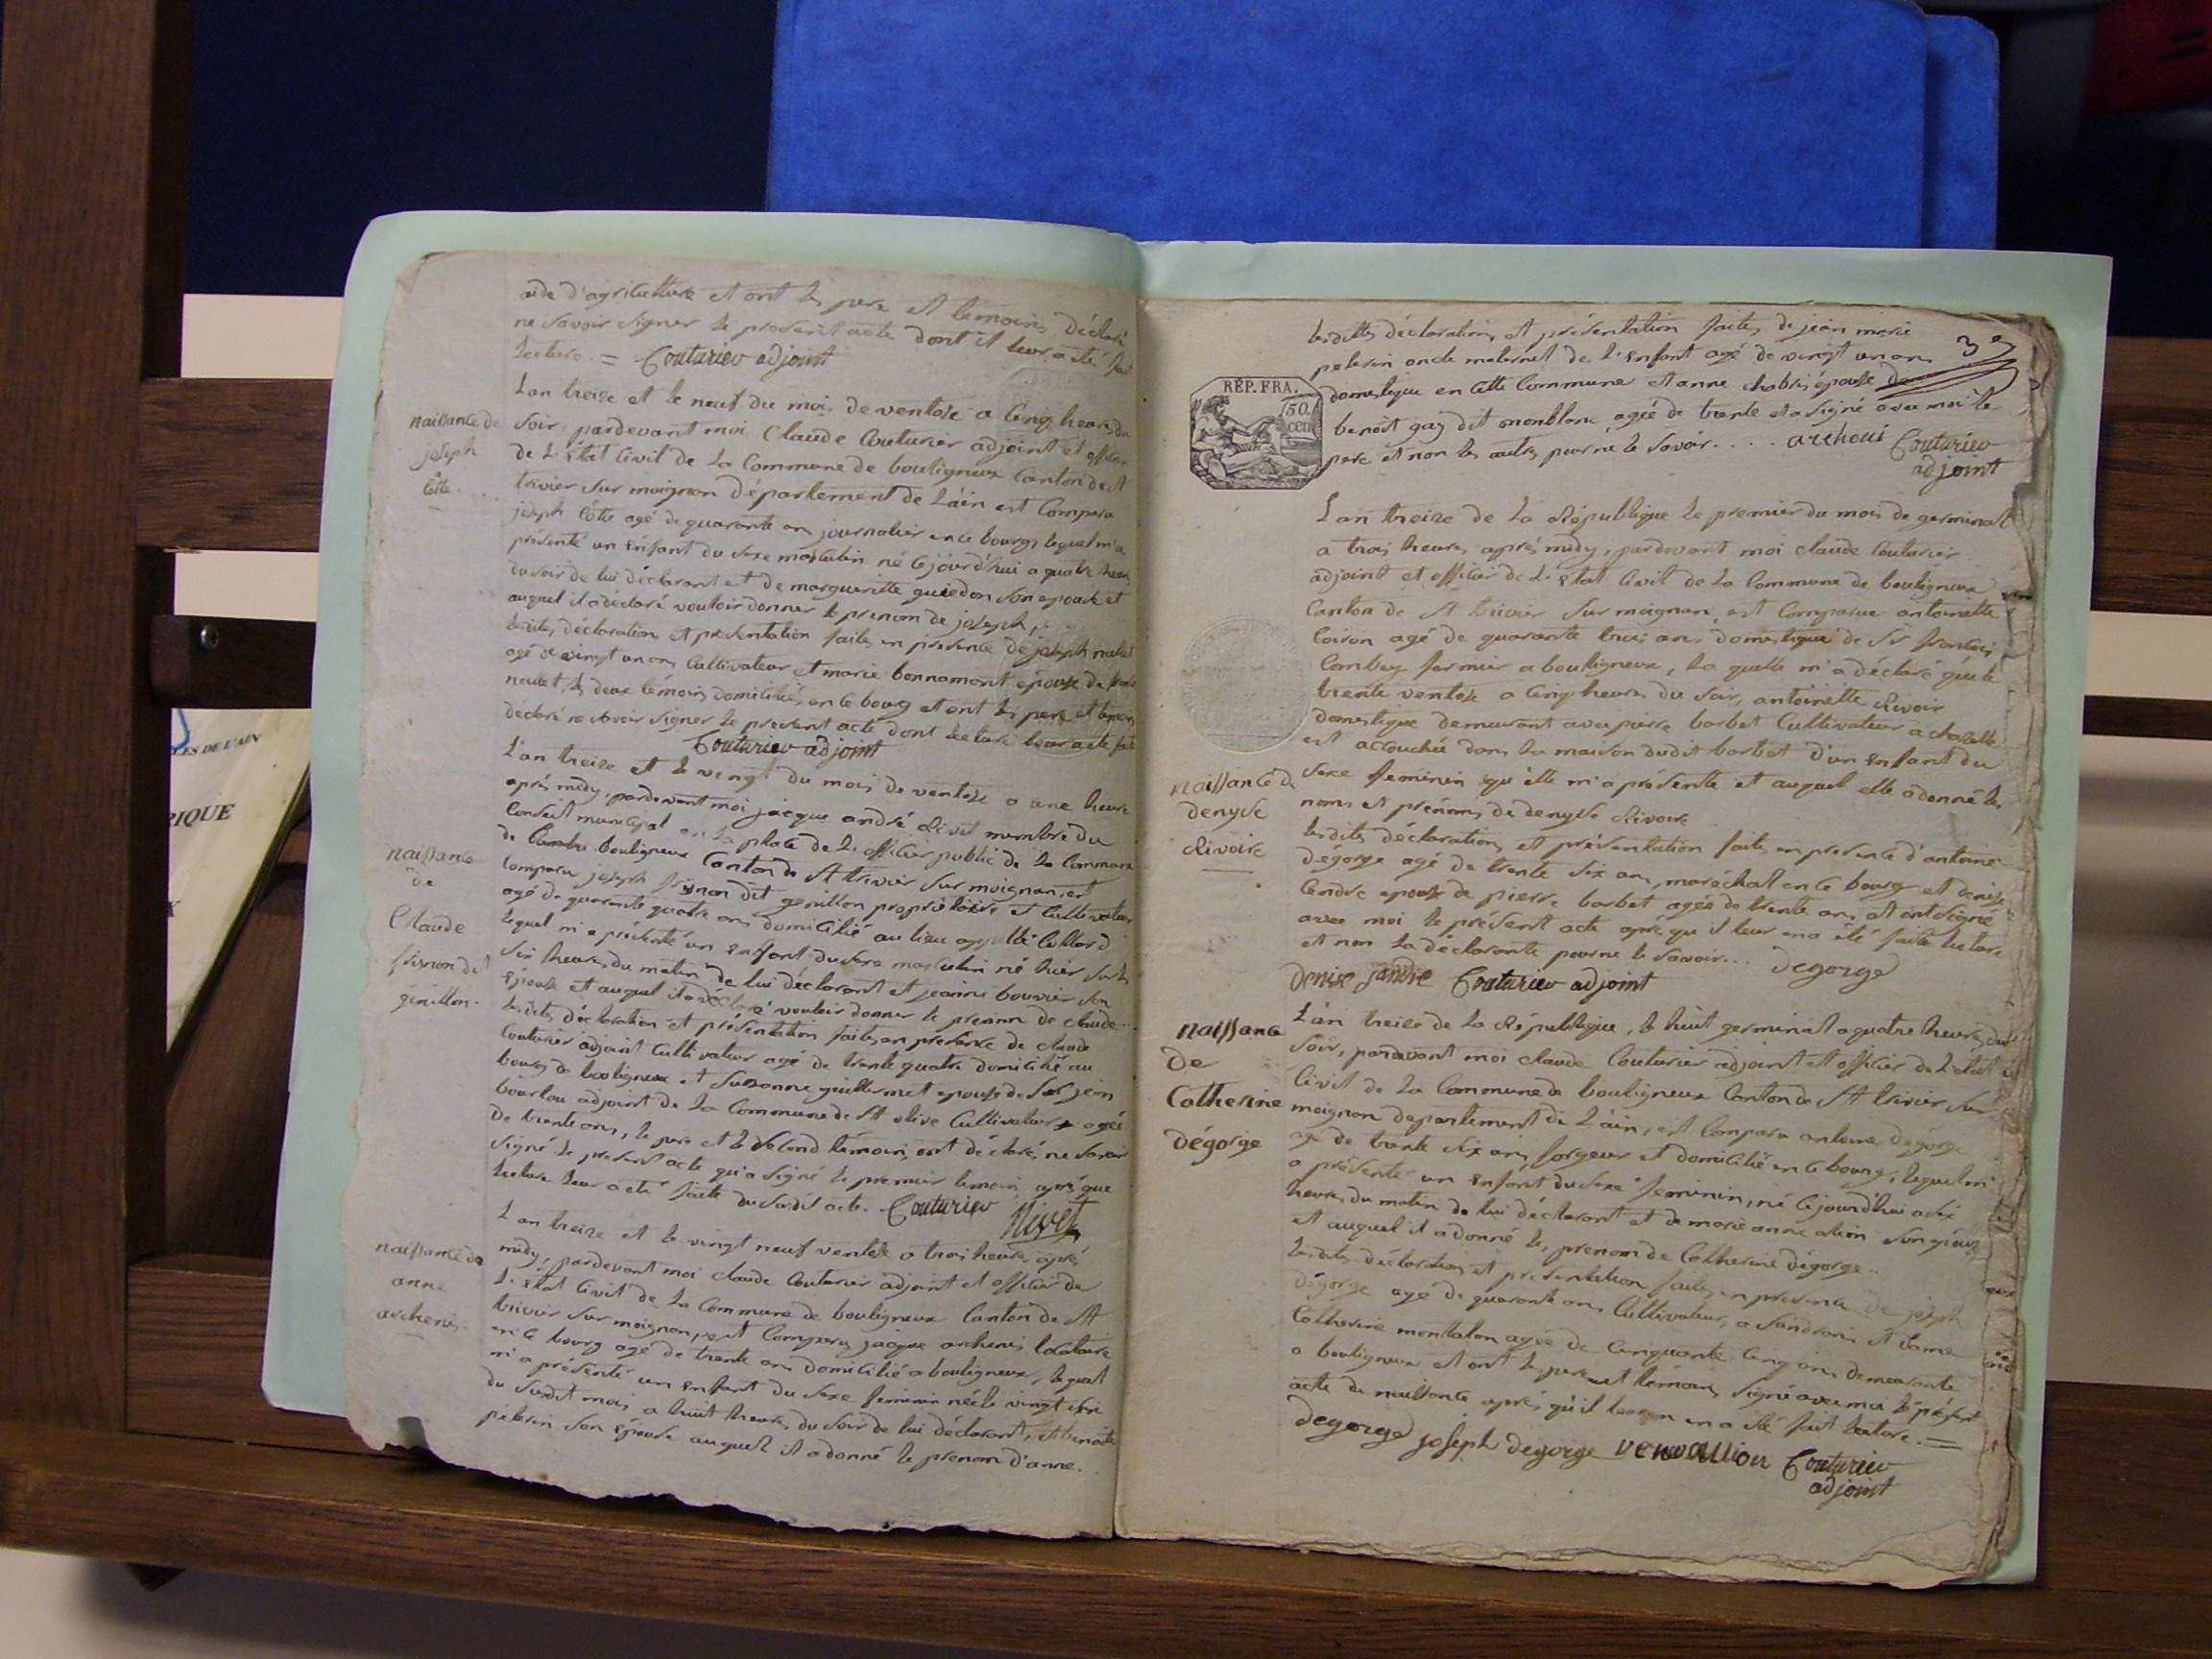 aide d'agriculture et ont les pere et temoins déclaré
ne savoir signer le present acte dont il leur a été fait
lecture. = Couturier adjoint
naissance de
joseph
Cotte.
L'an treize et le neuf du mois de ventose a cinq heures du
soir, pardevant moi Claude Couturier adjoint et officier
de L'état Civil de La Commune de bouligneux Canton de St
trivier sur moignan Département de L'ain est Comparu
joseph Cotte agé de quarante ans journalier en ce bourg, lequel m'a
présenté un Enfant du sexe masculin né Cejourd'hui a quatre heures
du soir de lui déclarant et de margueritte guiedon son epouse et
auquel il a déclaré vouloir donner le prenom de joseph,
lesdites déclaration et présentation faites en presence de joseph
agé de vingt un ans Cultivateur et marie bonnamont épouse de
les deux témoins domiciliés en ce bourg et ont les pere et temoins
déclaré ne savoir signer le present acte dont lecture leur a été faite
Couturier adjoint
naissance
de
Claude
frignon dit
genillon.
L'an treize et le vingt du mois de ventose a une heure
après midy, pardevant moi jacque andré Nivet membre du
Conseil municipal en la place de L'officier public de La Commune
de bouligneux Canton de St trivier sur moignan, est
Comparu joseph frignon dit genillon propriétaire et Cultivateur
agé de quarante quatre ans domicilié au lieu appellé Collard
lequel m'a présenté un Enfant du sexe masculin né hier sur les
six heures du matin de lui déclarant et jeanne bouvier son
Epouse et auquel il a déclaré vouloir donner le prenom de claude.
lesdites déclaration et présentation faites en presence de claude
Couturier adjoint Cultivateur agé de trente quatre domicilié au
bourg de bouligneux et Suzanne guillermet epouse de jean
bourlou adjoint de La Commune de St olive Cultivateur agée
de trente ans, le pere et le second témoins ont déclaré ne savoir
signé le present acte qu'a signé le premier temoin après que
lecture leur a été faite du susdit acte. Couturier Nivet
naissance de
anne
archeni
L'an treize et le vingt neuf ventose a trois heures après
midy, pardevant moi claude Couturier adjoint et officier de
L'état Civil de La Commune de bouligneux Canton de St
trivier sur moignan, est Comparu jacque archeni locataire
en ce bourg agé de trente ans domicilié a bouligneux, lequel
m'a présenté un Enfant du sexe feminin née le vingt
du susdit mois a huit heures du soir de lui déclarant, et benoite
pelerin son Epouse auquel il a donné le prenom d'anne.
3
RÉP. FRA.
50 cen
lesdittes déclaration et présentation faites de jean marie
pelerin oncle maternel de L'Enfant agé de vingt un ans
domestique en Cette Commune et anne chabri épouse de
benoit gay dit monblanc, agée de trente et a signé avec moi le
pere et non les autres pour ne le savoir.... archeni Couturier
adjoint
naissance de
denyse
Rivoire
L'an treize de La République le premier du mois de germinal
a trois heures après midy, pardevant moi claude Couturier
adjoint et officier de L'Etat Civil de La Commune de bouligneux
Canton de St trivier sur moignan, est Comparue antoinette
Coiron agé de quarante trois ans domestique de Sr francois
Combey fermier a bouligneux, la quelle m'a déclaré que le
trente ventose a cinq heures du soir, antoinette Rivoir
domestique demeurant avec pierre barbet Cultivateur a
est accouchée dans La maison dudit barbet d'un Enfant du
sexe feminin qu'elle m'a présenté et auquel elle a donné les
noms et prénoms de denyse Rivoire
lesdites déclaration et présentation faites en presence d'antoine
dégorge agé de trente six ans, maréchal en ce bourg et denise
epouse de pierre barbet agée de trente ans et ont signé
avec moi le présent acte après qu'il leur en a été faite lecture
et non la déclarante pour ne le savoir... Degorge
denise jandre Couturier adjoint
naissance
de
Catherine
dégorge
L'an treize de La République, le huit germinal a quatre heures du
soir, pardevant moi claude Couturier adjoint et officier de L'état
Civil de La Commune de bouligneux Canton de St trivier sur
moignan département de L'ain, est Comparu antoine degorge
agé de trente six ans, forgeur et domicilié en ce bourg, lequel m'
a présenté un Enfant du sexe feminin, né Cejourd'hui a dix
heures du matin de lui déclarant et de marie anne alion son épouse
et auquel il a donné les prenom de Catherine dégorge.
lesdites déclaration et présentation faites en presence de joseph
dégorge agé de quarante ans Cultivateur, a sandrans et dame
Catherine montalon agée de Cinquante Cinq ans demeurante
a bouligneux et ont les pere et témoins signé avec moi le présent
acte de naissance après qu'il leur en a été fait lecture. =
Degorge joseph degorge Couturier
adjoint
LES DE L'AIN
RIQUE